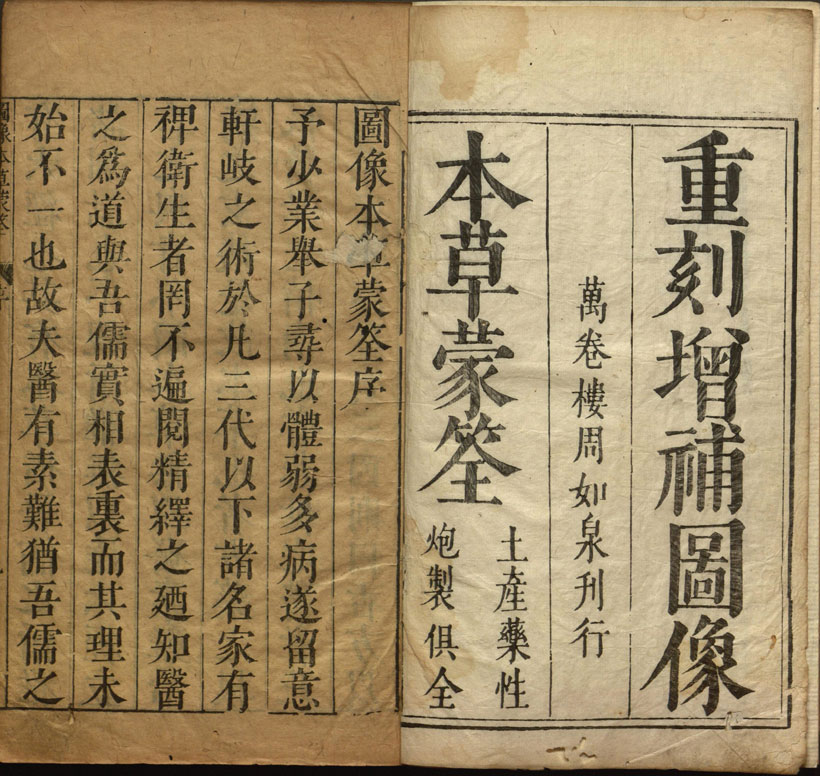 重刻增補圖像
萬卷樓周如泉刊行
本草蒙筌
土產藥性
炮製俱全
圖像本草蒙筌序
予少業舉子尋以體弱多病遂留意
軒岐之術於凡三代以下諸名家有
裨衛生者罔不遍閱精繹之廼知醫
之爲道與吾儒實相表裏而其理未
始不一也故夫醫有素難猶吾儒之
圖像本草蒙筌 序